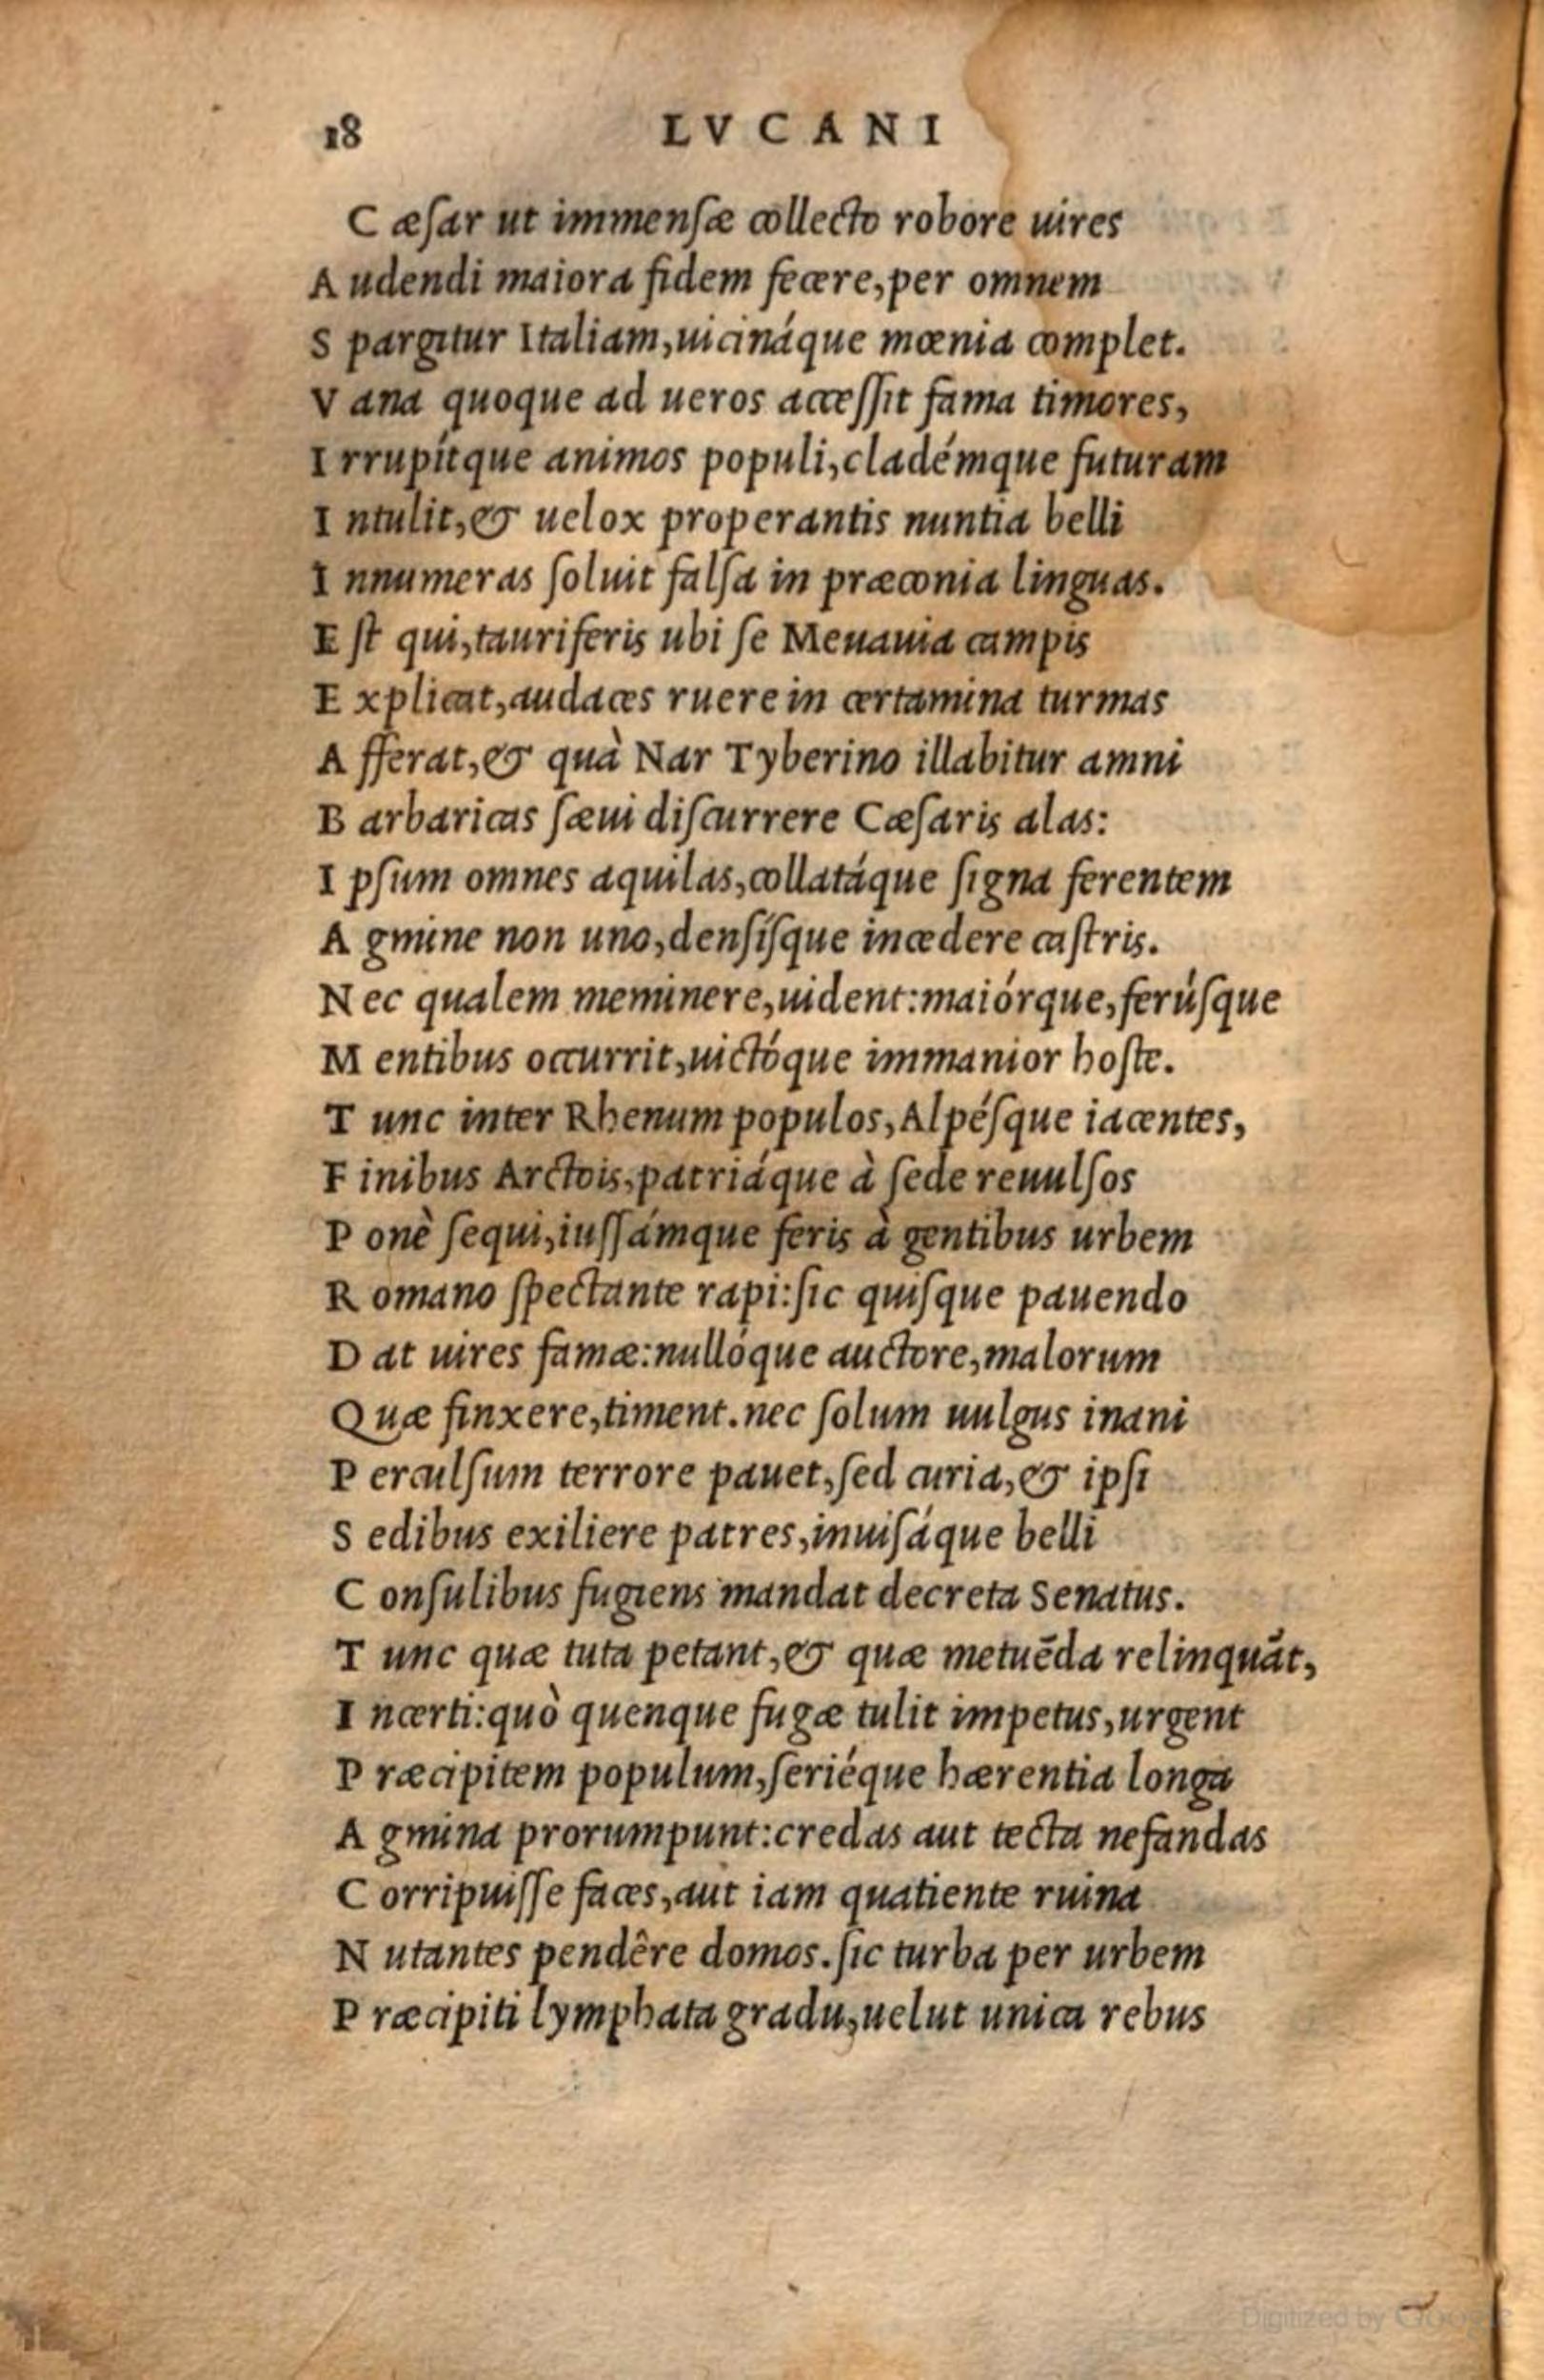 18 LVCANI
C æſar ut immenſæ collecto robore uires
A udendi maiora fidem fecere,per omnem
S pargitur Italiam,uicináque mœnia complet.
V ana quoque ad ueros acceſſit fama timores,
I rrupítque animos populi,cladémque futuram
I ntulit,& uelox properantis nuntia belli
I nnumeras ſoluit falſa in præconia linguas.
E ſt qui,tauriferis ubi ſe Meuauia campis
E xplicat,audaces ruere in certamina turmas
A fferat,& quà Nar Tyberino illabitur amni
B arbaricas ſæui diſcurrere Cæſaris alas:
I pſum omnes aquilas,collatáque ſigna ferentem
A gmine non uno,denſíſque incedere caſtris.
N ec qualem meminere,uident:maiórque,ferúſque
M entibus occurrit,uictóque immanior hoſte.
T unc inter Rhenum populos,Alpéſque iacentes,
F inibus Arctois,patriáque à ſede reuulſos
P onè ſequi,iuſſámque feris à gentibus urbem
R omano ſpectante rapi:ſic quiſque pauendo
D at uires famæ:nullóque auctore,malorum
Q uæ finxere,timent.nec ſolum uulgus inani
P erculſum terrore pauet,ſed curia,& ipſi
S edibus exiliere patres,inuiſáque belli
C onſulibus fugiens mandat decreta Senatus.
T unc quæ tuta petant,& quæ metuēda relinquāt,
I ncerti:quò quenque fugæ tulit impetus,urgent
P ræcipitem populum,ſeriéque hærentia longa
A gmina prorumpunt:credas aut tecta nefandas
C orripuiſſe faces,aut iam quatiente ruina
N utantes pendêre domos.ſic turba per urbem
P ræcipiti lymphata gradu,uelut unica rebus
Digitized by Google